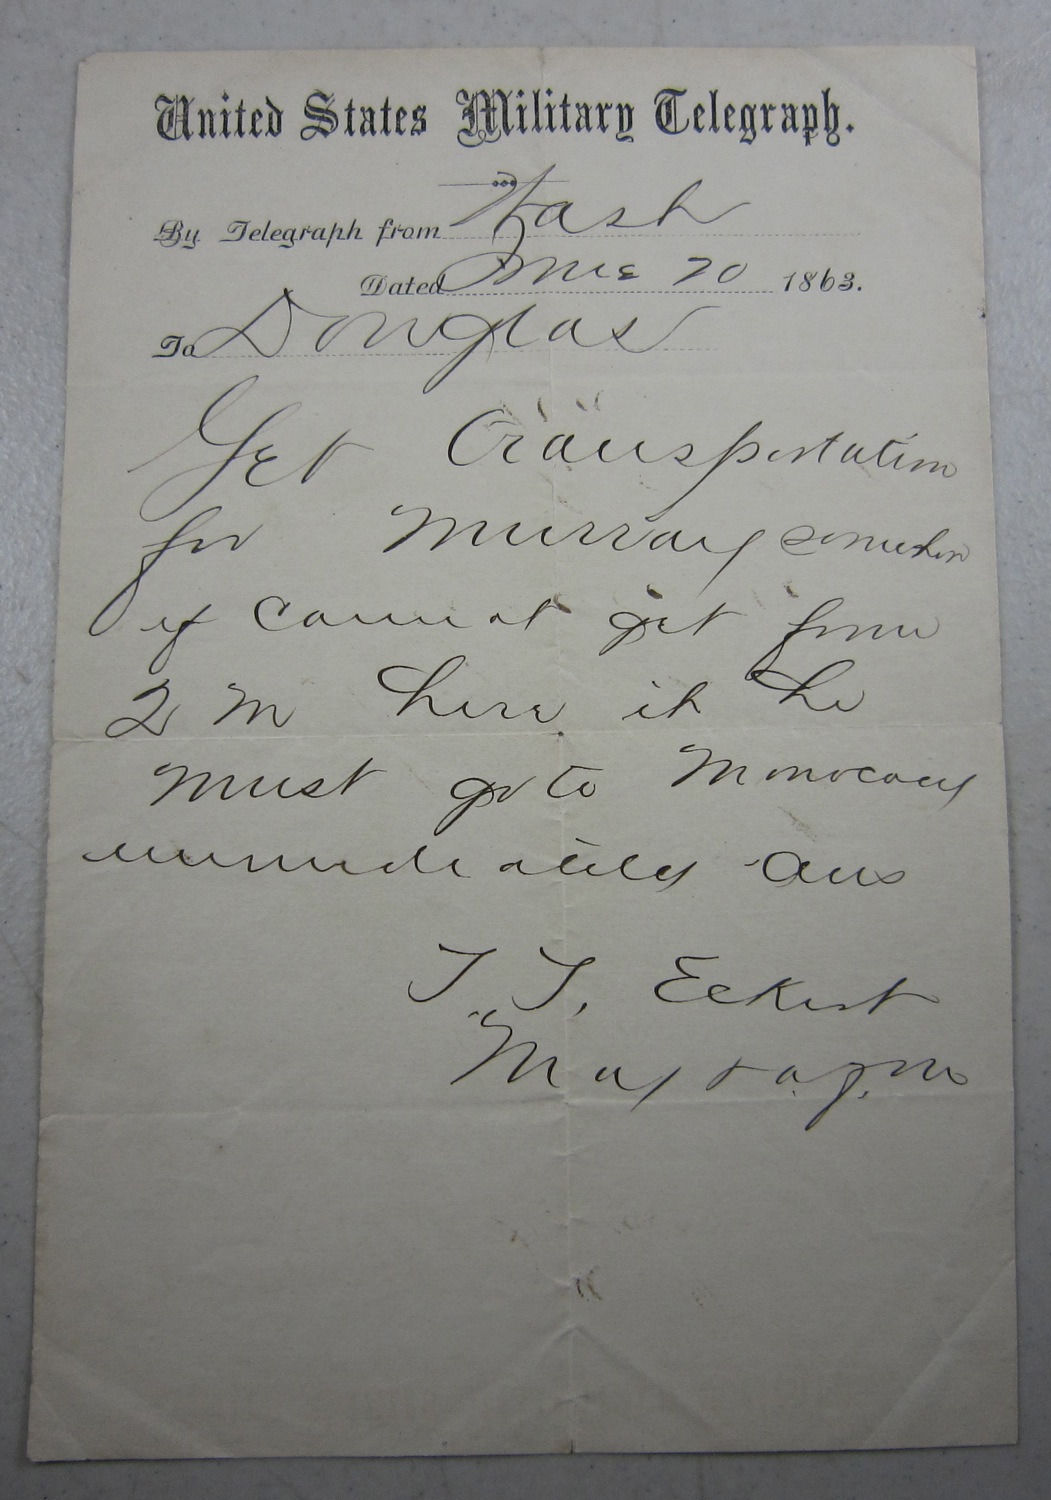 United States Military Telegraph.
By Telegraph from Wash
Dated June 20 1863.
To Douglas
Get transportation
for Murray somehow
if cannot get from
Q M here it he
must go to Monocacy
immediately Ans
T. T. Eckert
Maj & a.g.m